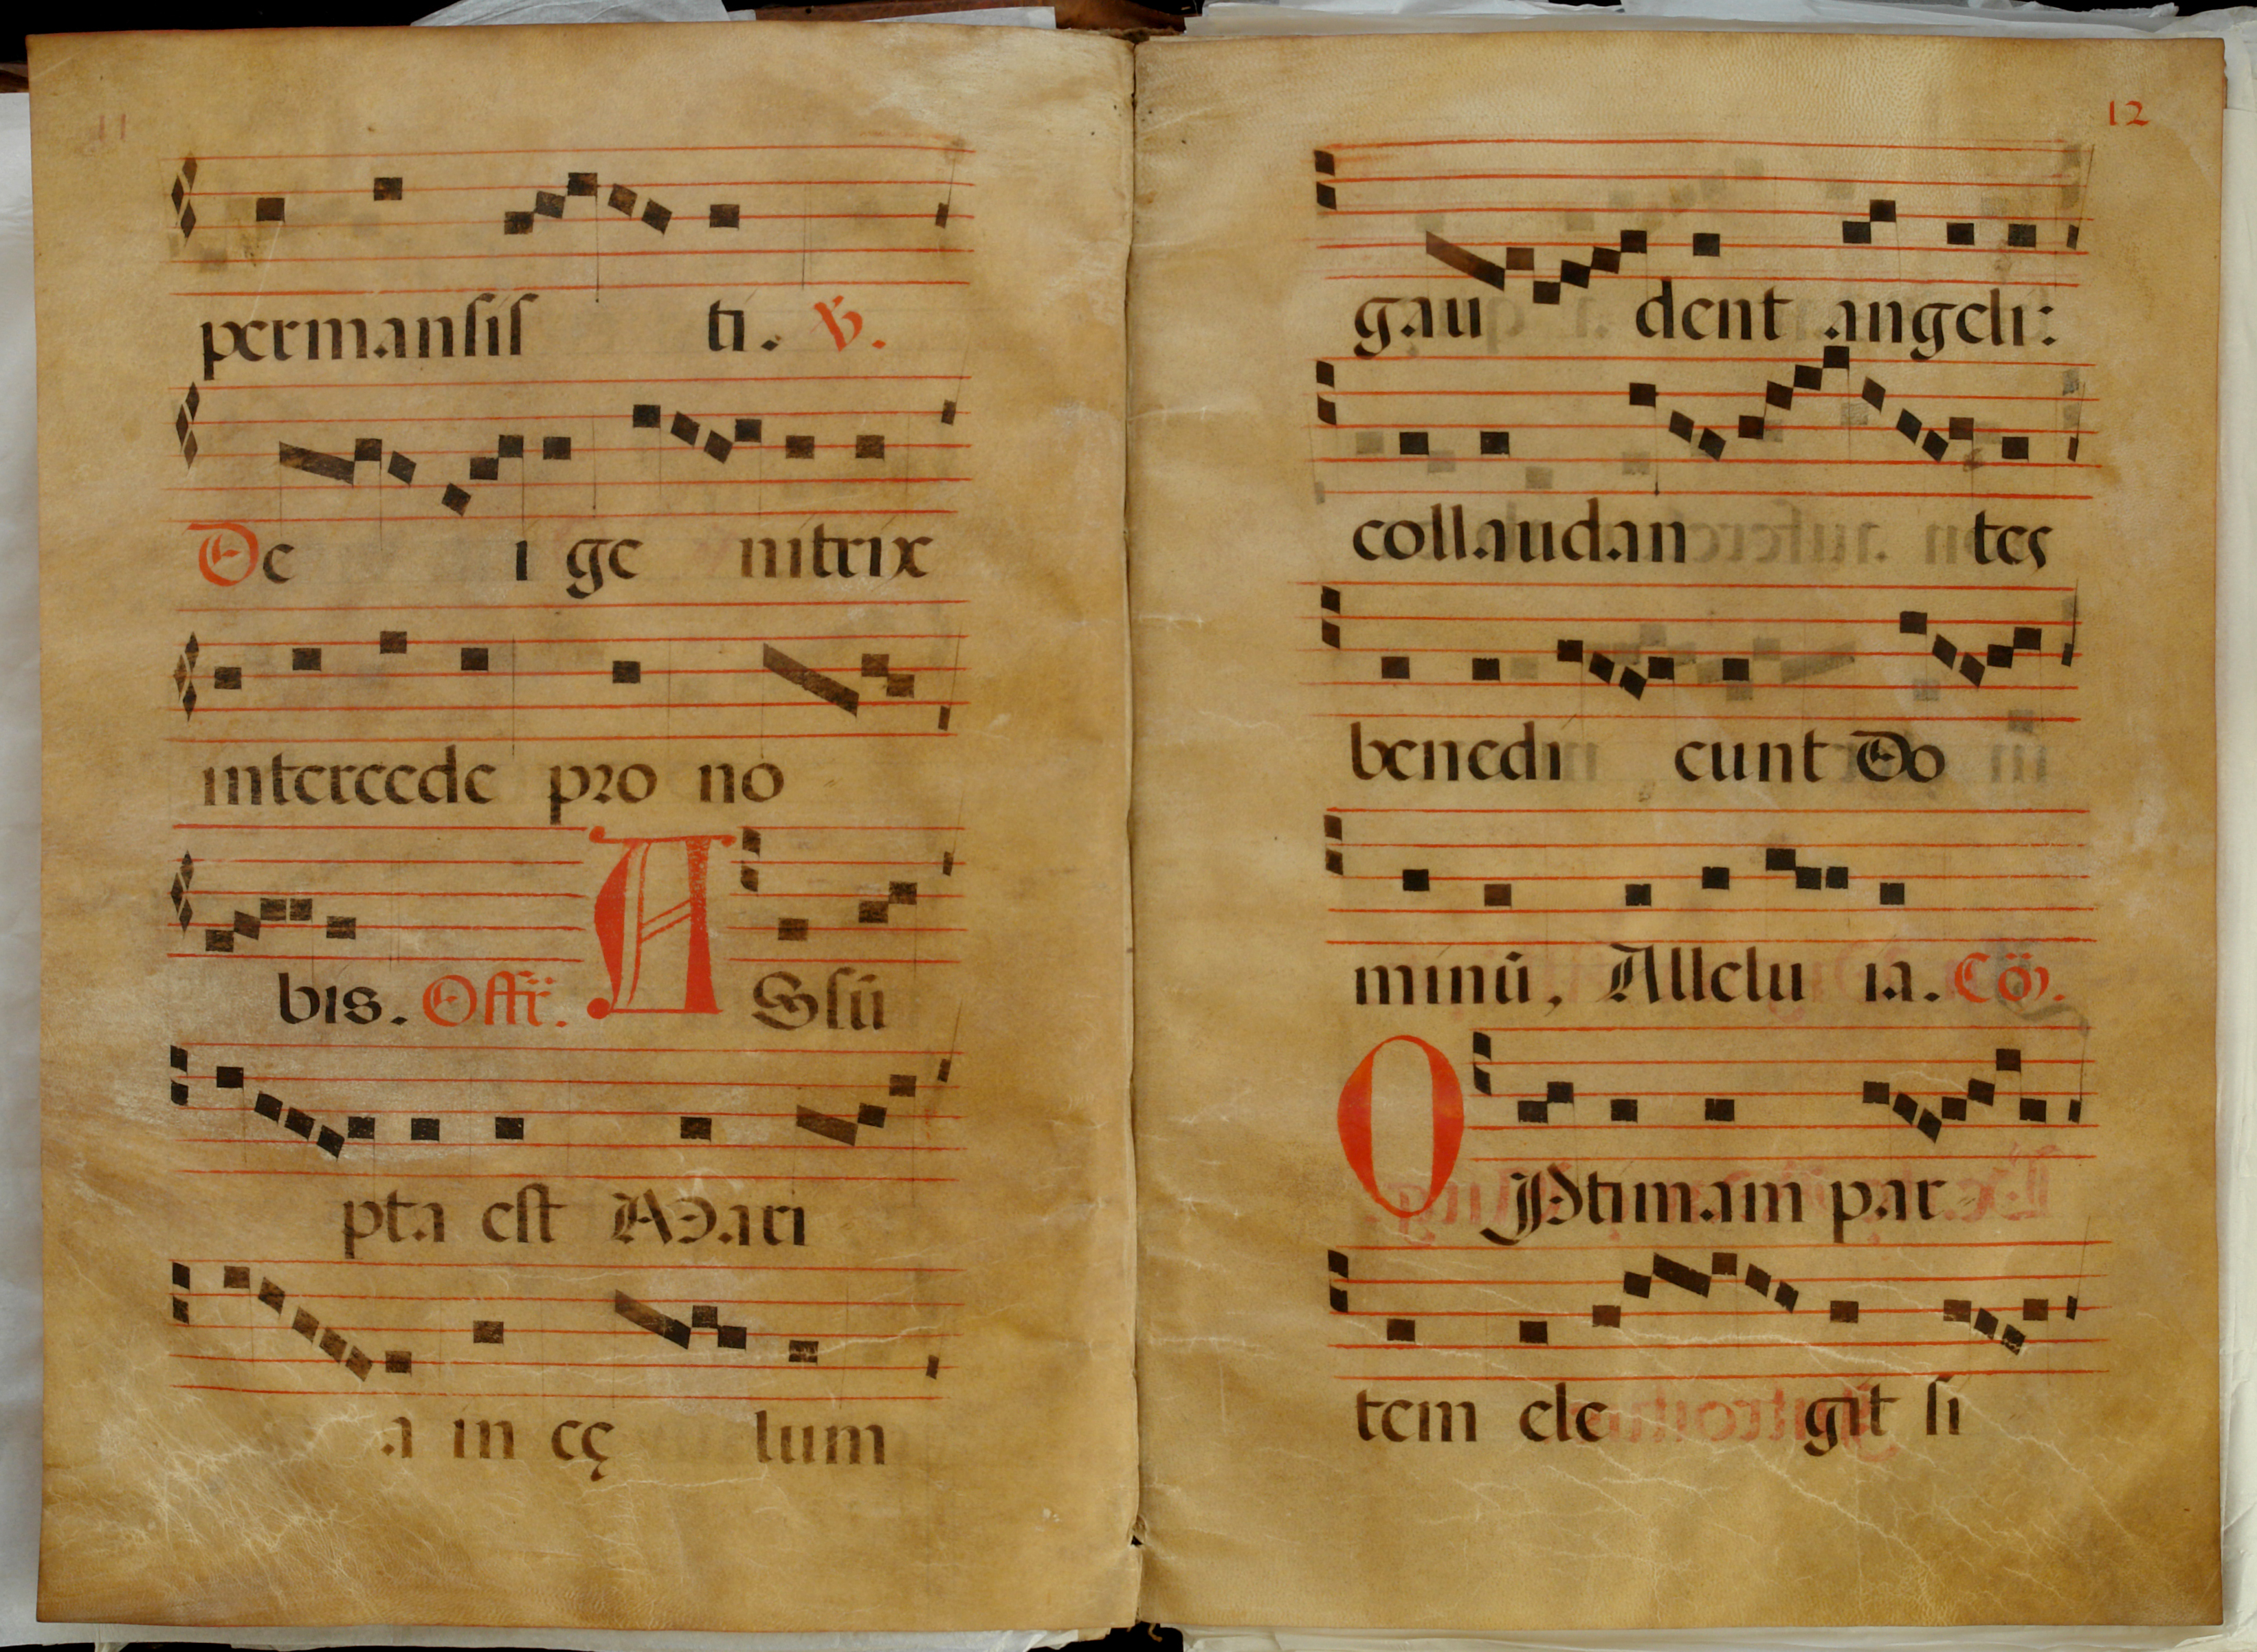 11
permansis ti. ℣.
De i ge nitrix
intercede pro no
bis. Offr̄. A Ssū
pta est Mari
a in cę lum
12
gau dent angeli:
collaudan tes
benedi cunt Do
minū, Allelu ia. Cō.
O Ptimam par
tem ele git si